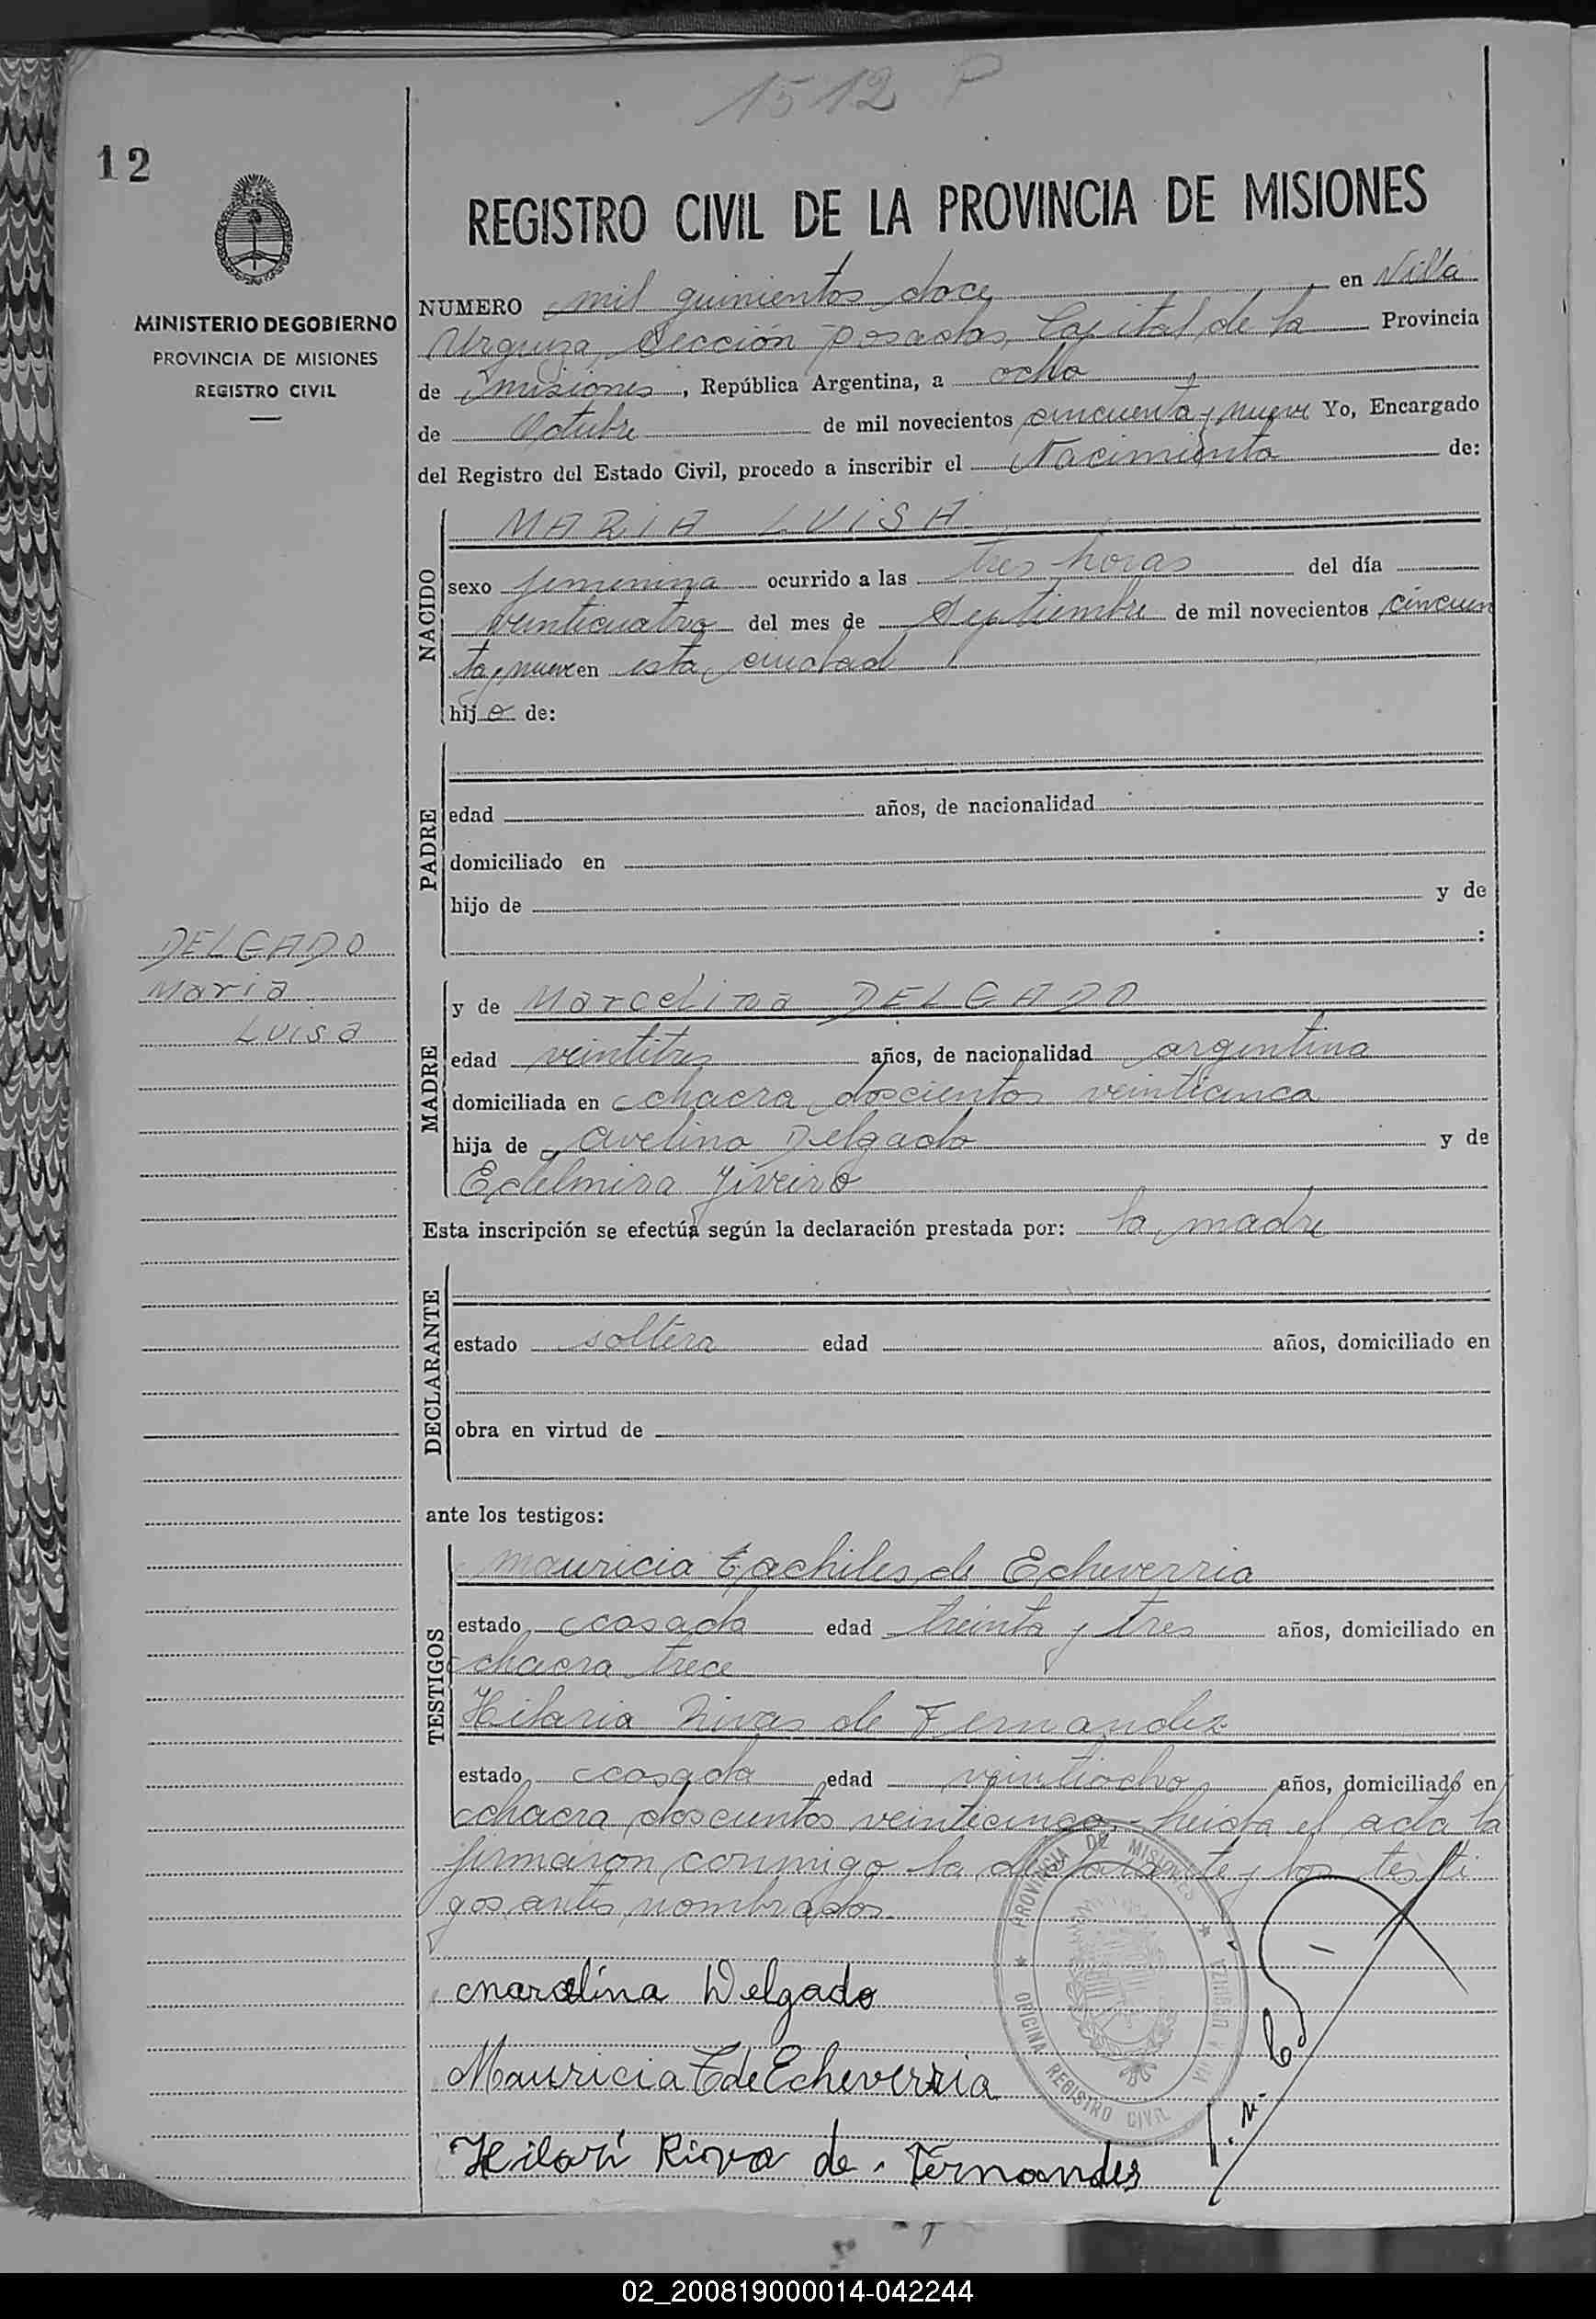 1512 P
12
REGISTRO CIVIL DE LA PROVINCIA DE MISIONES
MINISTERIO DE GOBIERNO
PROVINCIA DE MISIONES
REGISTRO CIVIL
NUMERO mil quinientos doce en Villa
Urquiza, Sección Posadas, Capital de la Provincia
de Misiones, República Argentina, a ocho
de Octubre de mil novecientos cincuenta y nueve Yo, Encargado
del Registro del Estado Civil, procedo a inscribir el Nacimiento de:
NACIDO
MARIA LUISA
sexo femenina ocurrido a las tres horas del día
veinticuatro del mes de Septiembre de mil novecientos cincuen
ta y nueve en esta ciudad
hija de:
PADRE
edad años, de nacionalidad
domiciliado en
hijo de y de
:
DELGADO
Maria
Luisa
MADRE
y de Marcelina DELGADO
edad veintitres años, de nacionalidad argentina
domiciliada en chacra doscientos veinticinco
hija de Avelino Delgado y de
Edelmira
Esta inscripción se efectúa según la declaración prestada por: la madre
DECLARANTE
estado soltera edad años, domiciliado en
obra en virtud de
ante los testigos:
TESTIGOS
Mauricia de Echeverria
estado casada edad treinta y tres años, domiciliado en
chacra trece
Hilaria Rivas de Fernandez
estado casada edad veintiocho años, domiciliado en
chacra doscientos veinticinco.- Leida el acta la
firmaron conmigo la declarante y los testi
gos antes nombrados.
PROVINCIA DE MISIONES
OFICINA REGISTRO CIVIL
VILLA URQUIZA
Marcelina Delgado
Mauricia T de Echeverria
Hilari Riva de Fernandes
02_200819000014-042244